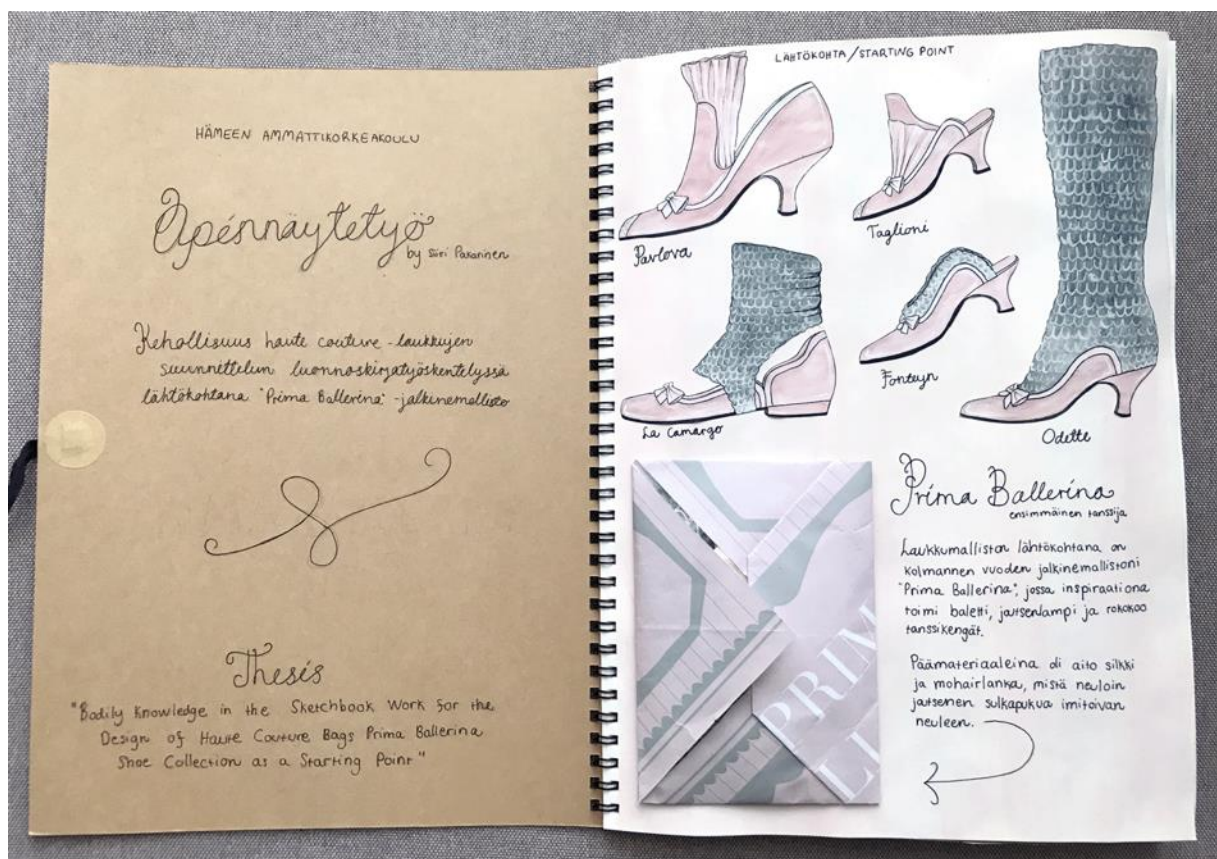 HÄMEEN AMMATTIKORKEAKOULU
Opinnäytetyö
by Siiri Pasarinen
Kehollisuus haute couture -laukkujen
suunnittelun luonnoskirjatyöskentelyssä
lähtökohtana "Prima Ballerina" -jalkinemallisto
Thesis
"Bodily Knowledge in the Sketchbook Work for the
Design of Haute Couture Bags Prima Ballerina
Shoe Collection as a Starting Point"
LÄHTÖKOHTA/STARTING POINT
Pavlova
Taglioni
La Camargo
Fonteyn
Odette
PRIM
Prima Ballerina
ensimmäinen tanssija
Laukkumalliston lähtökohtana on
kolmannen vuoden jalkinemallistoni
"Prima Ballerina", jossa inspiraationa
toimi baletti, joutsenlampi ja rokokoo
tanssikengät.
Päämateriaaleina oli aito silkki
ja mohairlanka, mistä neuloin
joutsenen sulkapukua imitoivan
neuleen.